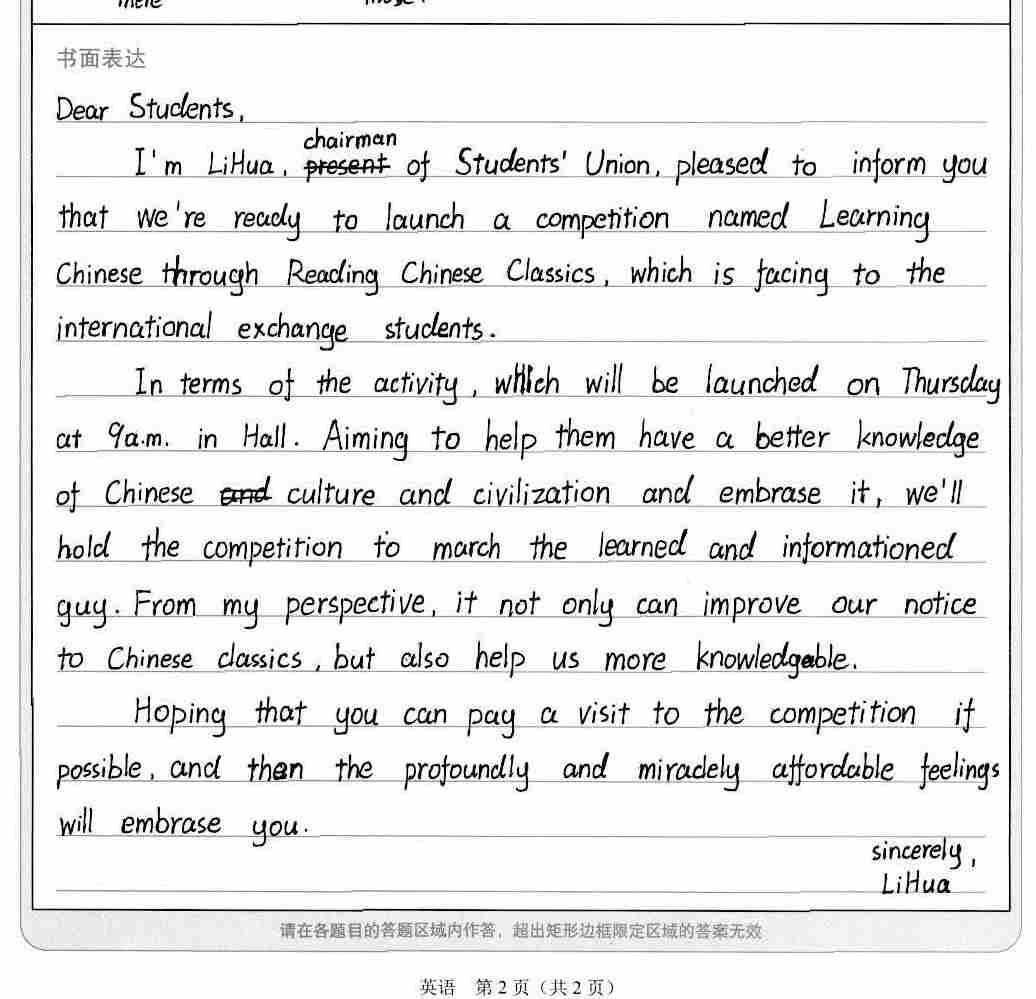 there those.
书面表达
Dear Students,
I'm LiHua, present chairman of Students' Union, pleased to inform you
that we're ready to launch a competition named Learning
Chinese through Reading Chinese Classics, which is facing to the
international exchange students.
In terms of the activity, which will be launched on Thursday
at 9a.m. in Hall. Aiming to help them have a better knowledge
of Chinese and culture and civilization and embrase it, we'll
hold the competition to march the learned and informationed
guy. From my perspective, it not only can improve our notice
to Chinese classics, but also help us more knowledgable.
Hoping that you can pay a visit to the competition if
possible, and then the profoundly and miradely affordable feelings
will embrase you.
sincerely,
LiHua
请在各题目的答题区域内作答，超出矩形边框限定区域的答案无效
英语 第2页（共2页）